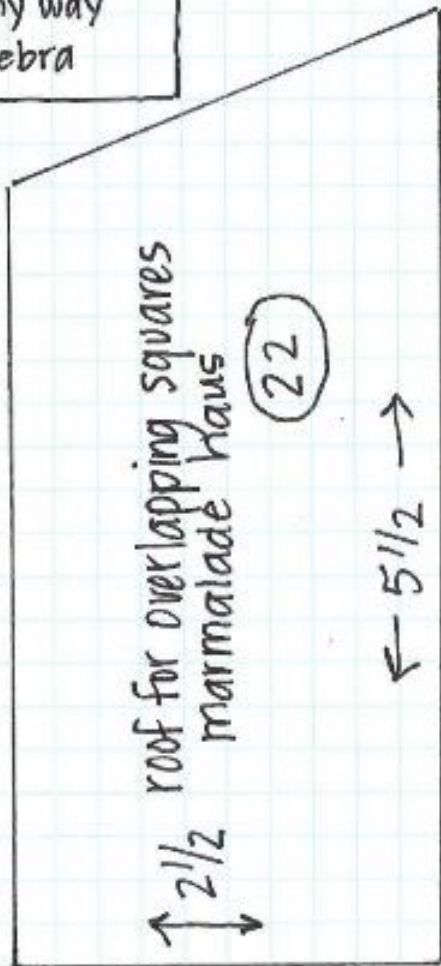 ny way
ebra
roof for overlapping squares
marmalade haus
22
2 1/2
← 5 1/2 →